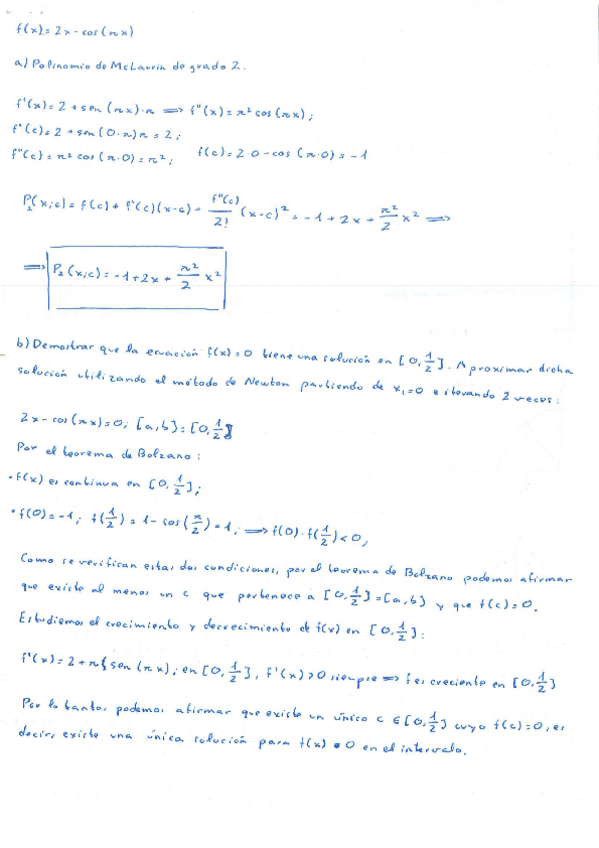 f(x)=2x-cos(πx)
a) Polinomio de McLaurin de grado 2.
f'(x)=2+sen(πx)·π ⟹ f''(x)=π²cos(πx);
f'(c)=2+sen(0·π)π=2;
f''(c)=π²cos(π·0)=π²; f(c)=2·0-cos(π·0)=-1
P₂(x;c)=f(c)+f'(c)(x-c)+f''(c)/2!(x-c)²=-1+2x+π²/2 x² ⟹
⟹ P₂(x;c)=-1+2x+π²/2 x²
b) Demostrar que la ecuación f(x)=0 tiene una solución en [0,1/2]. Aproximar dicha
solución utilizando el método de Newton partiendo de x₁=0 e iterando 2 veces:
2x-cos(πx)=0; [a,b]=[0,1/2]
Por el teorema de Bolzano:
·f(x) es continua en [0,1/2];
·f(0)=-1; f(1/2)=1-cos(π/2)=1, ⟹ f(0)·f(1/2)<0,
Como se verifican estas dos condiciones, por el teorema de Bolzano podemos afirmar
que existe al menos un c que pertenece a [0,1/2]=[a,b] y que f(c)=0.
Estudiemos el crecimiento y decrecimiento de f(x) en [0,1/2]:
f'(x)=2+π sen(πx); en [0,1/2], f'(x)>0 siempre ⟹ f es creciente en [0,1/2]
Por lo tanto, podemos afirmar que existe un único c ∈[0,1/2] cuyo f(c)=0, es
decir, existe una única solución para f(x)=0 en el intervalo.